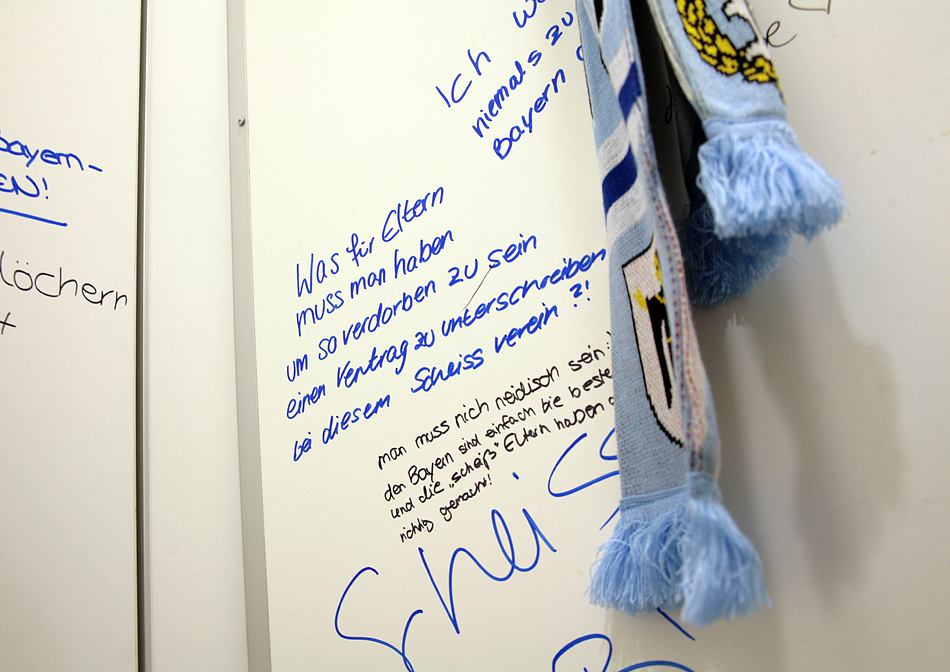 Bayern-
EN!
löchern
Ich
niemals zu
Bayern
Was für Eltern
muss man haben
um so verdorben zu sein
einen Vertrag zu unterschreiben
bei diesem Scheiss verein ?!
man muss nich neidisch sein :)
den Bayern sind einfach die beste
und die „scheiß" Eltern haben
richtig gemacht!